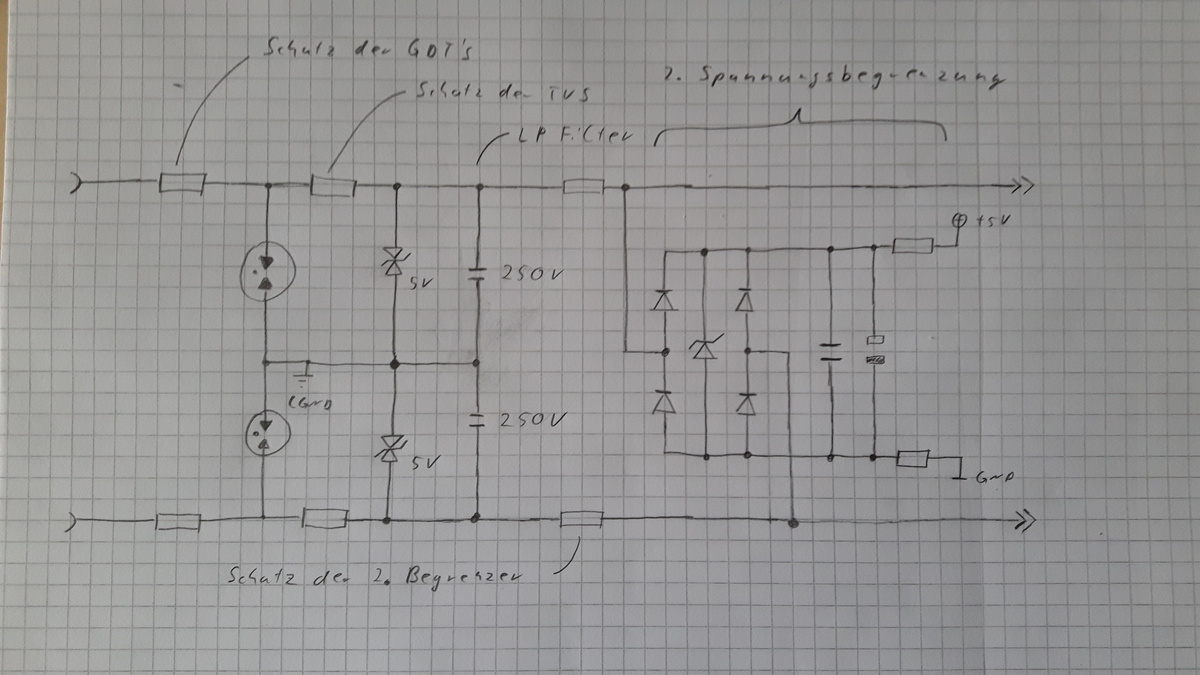 Schutz der GDT's
Schutz der TVS
2. Spannungsbegrenzung
LP Filter
+5V
5V
250V
CGND
250V
5V
GND
Schutz der 2. Begrenzer